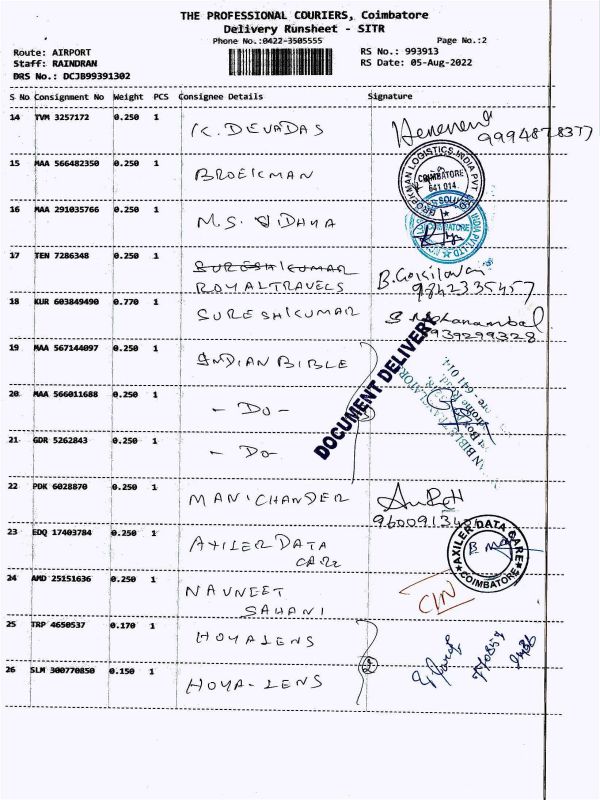 THE PROFESSIONAL COURIERS, Coimbatore
Delivery Runsheet - SITR
Phone No.:0422-3505555 Page No.:2
Route: AIRPORT RS No.: 993913
Staff: RAINDRAN RS Date: 05-Aug-2022
DRS No.: DCJB99391302
S No Consignment No Weight PCS Consignee Details Signature
14 TVM 3257172 0.250 1 K. DEVADAS
15 MAA 566482350 0.250 1 BROEKMAN
BROEKMAN LOGISTICS INDIA PVT
COIMBATORE
641 014
16 MAA 291035766 0.250 1 M.S. VIDHYA
17 TEN 7286348 0.250 1 SURESHKUMAR
ROYAL TRAVELS
9842335457
18 KUR 603849490 0.770 1 SURESHKUMAR
DOCUMENT DELIVERY
19 MAA 567144097 0.250 1 INDIAN BIBLE
20 MAA 566011688 0.250 1 - DO -
21 GDR 5262843 0.250 1 - DO -
22 PDK 6028870 0.250 1 MANICHANDER
23 EDQ 17403784 0.250 1 AXILER DATA
CARE
AXILER DATA CARE
COIMBATORE
24 AMD 25151636 0.250 1 NAVNEET
SAHANI
25 TRP 4650537 0.170 1 HOYA LENS
26 SLM 300770850 0.150 1 HOYA - LENS